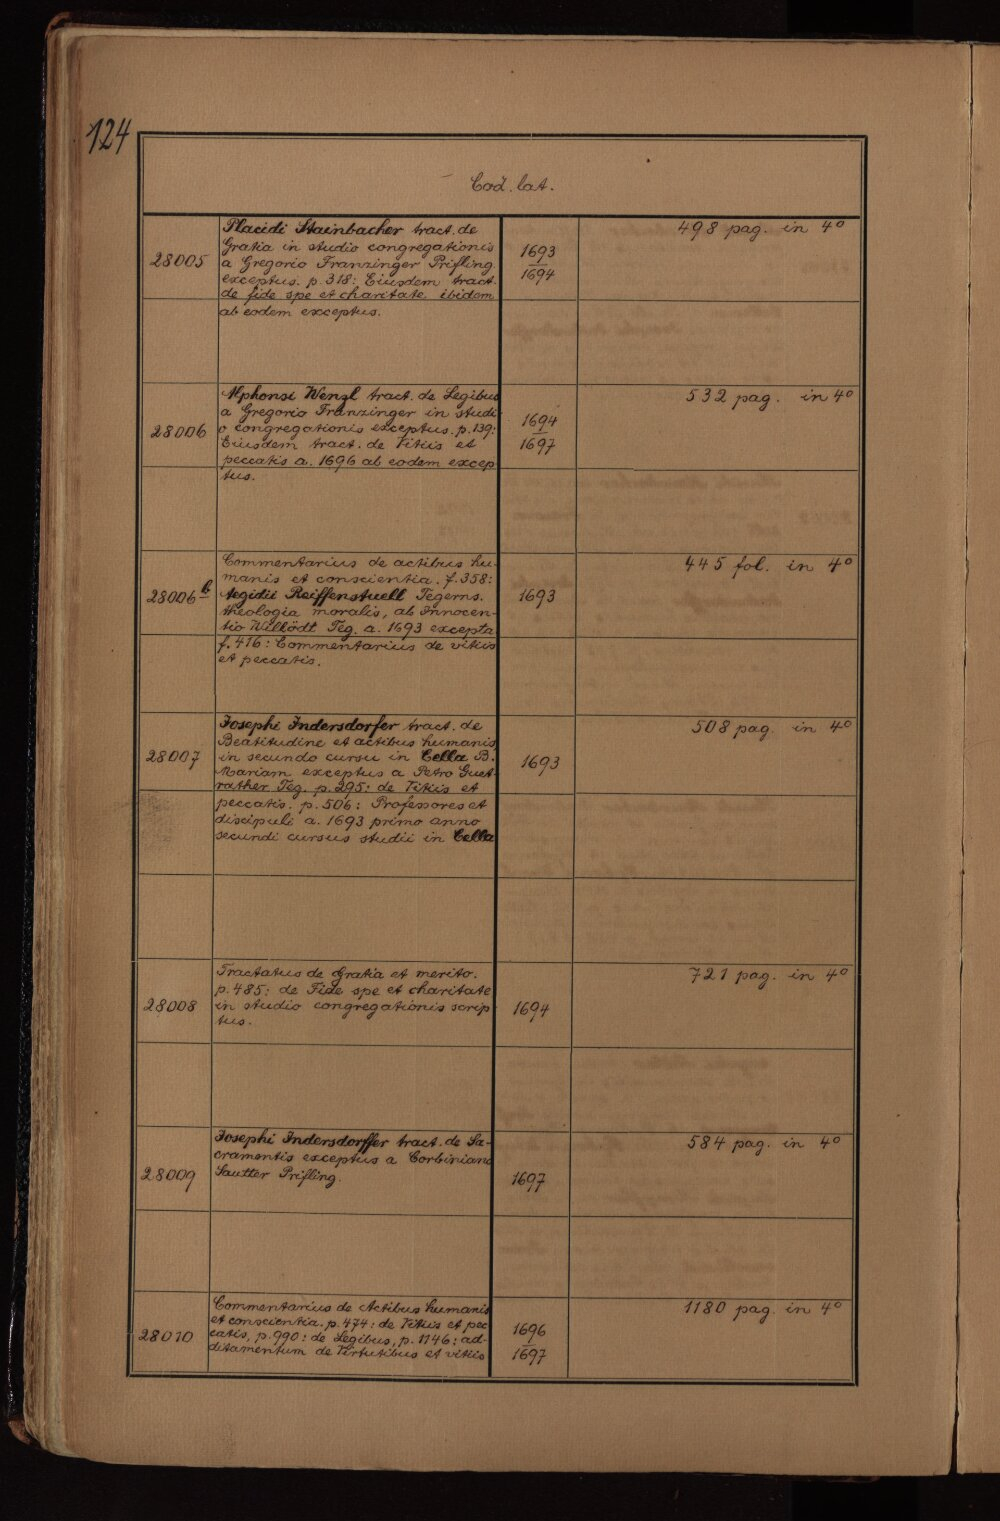 124
Cod. lat.
Placidi Stainbacher tract. de
Gratia in studio congregationis
28005
a Gregorio Franzinger Prifling.
exceptus. p. 318: Eiusdem tract.
de fide spe et charitate ibidem
ab eodem exceptus.
1693
1694
498 pag. in 4°
Alphonsi Wenzl tract. de Legibus
a Gregorio Franzinger in studi-
28006
o congregationis exceptus. p. 139:
Eiusdem tract. de Vitiis et
peccatis a. 1696 ab eodem excep
tus.
1694
1697
532 pag. in 4°
Commentarius de actibus hu-
manis et conscientia. f. 358:
28006 b
Aegidii Reiffenstuell Tegerns.
theologia moralis, ab Innocen-
tio Willödt Teg. a. 1693 excepta
f. 416: Commentarius de vitiis
et peccatis.
1693
445 fol. in 4°
Josephi Indersdorfer tract. de
Beatitudine et actibus humanis
28007
in secundo cursu in Cella B.
Mariam exceptus a Petro Guet-
rather Teg. p. 295: de Vitiis et
peccatis. p. 506: Professores et
discipuli a. 1693 primo anno
secundi cursus studii in Cella
1693
508 pag. in 4°
Tractatus de Gratia et merito.
p. 485: de Fide spe et charitate
28008
in studio congregationis scrip
tus.
1694
721 pag. in 4°
Josephi Indersdorffer tract. de Sa-
cramentis exceptus a Corbiniano
28009
Sautter Prifling.
1697
584 pag. in 4°
Commentarius de Actibus humanis
et conscientia. p. 474: de Vitiis et pec
28010
catis, p. 990: de Legibus, p. 1146: ad-
ditamentum de Virtutibus et vitiis
1696
1697
1180 pag. in 4°